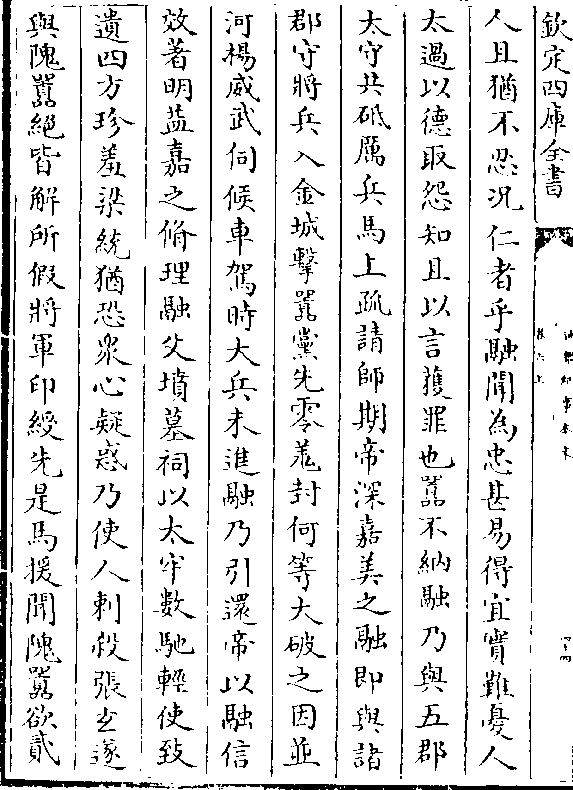 欽定四庫全書
人且猶不忍况仁者乎融聞為忠甚易得宜實難憂人
太過以德取怨知且以言獲罪也囂不納融乃與五郡
太守共砥厲兵馬上疏請師期帝深嘉美之融即與諸
郡守將兵入金城擊囂黨先零羌封何等大破之因並
河楊威武伺候車駕時大兵未進融乃引還帝以融信
效著明益嘉之脩理融父墳墓祠以太牢數馳輕使致
遺四方珍羞梁統猶恐衆心疑惑乃使人刺殺張玄遂
與隗囂絕皆解所假將軍印綬先是馬援聞隗囂欲貳